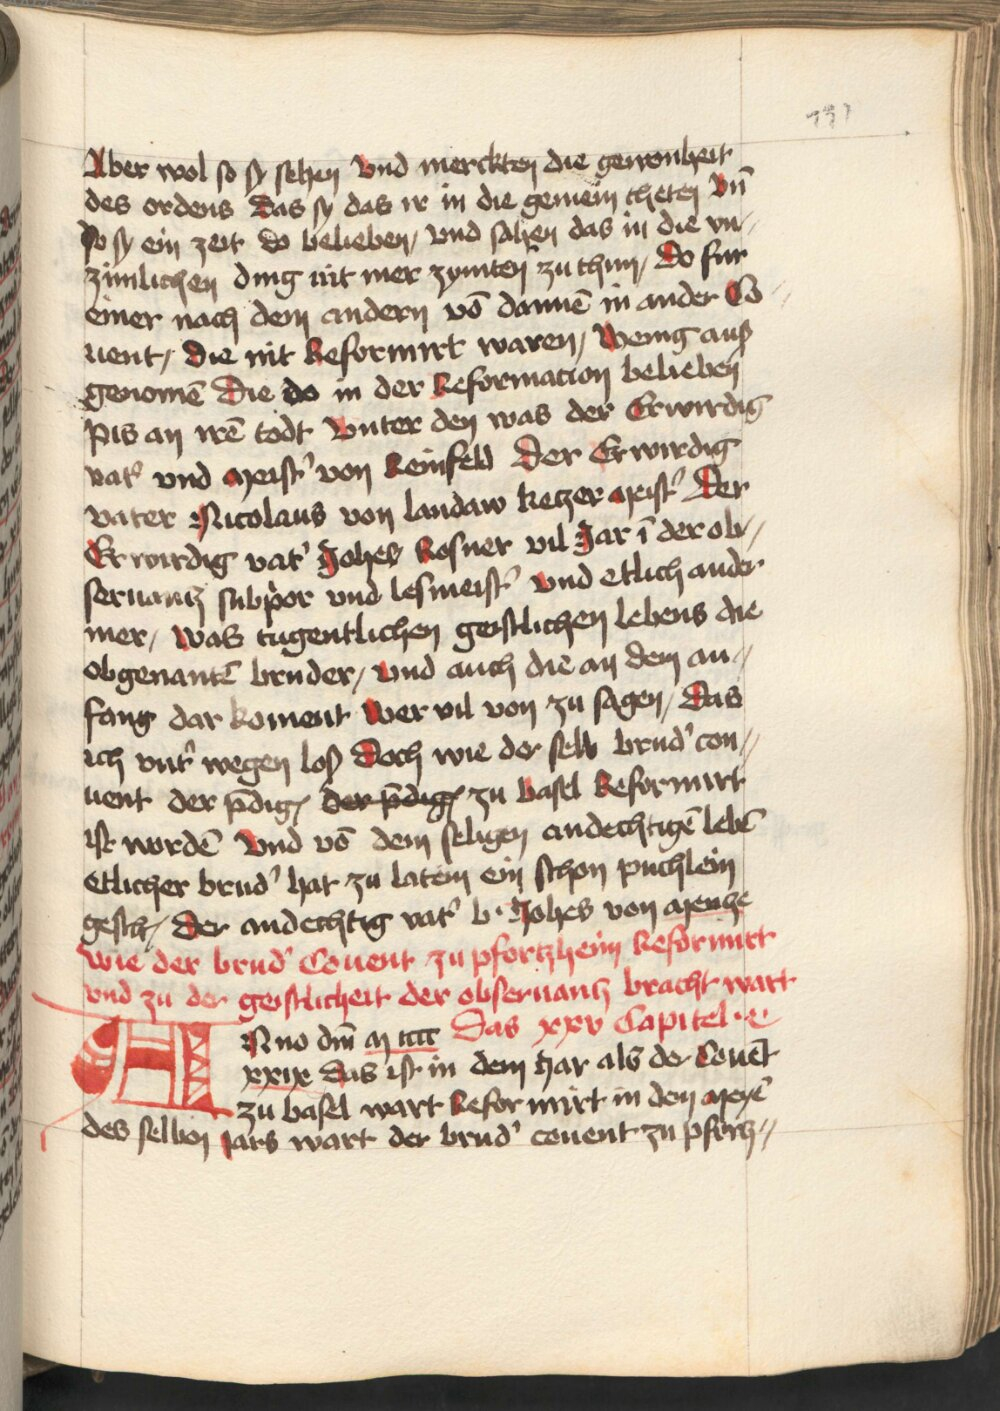 Aber wol so sy sehen Vnd merckten die gewonheit
des ordens Das sy das ir in die gemein theten Vn̄
So sy ein zeit do belieben / Vnd sahen das in die vn /
zimlichen ding nit mer zymten zu thun / Do fur
einer nach dem andern vō dannē in ander Co
uent / die nit Reformirt waren / Wenig auß
genomē Die do in der Reformacion belieben
Pis an irē todt Vnter den was der Erwirdig
vat' vnd Meist' von Reinfeld Der Erwirdig
vater Nicolaus von landaw ketzer Meist' Der
Erwirdig vat' Johes Kosner vil Jar ī der ob /
seruantz subpor vnd lesmeist' Vnd etlich ander
mer / Was tugentlichen geistlichen lebens die
obgenantē bruder / Vnd auch die an dem an /
fang dar koment Wer vil von zu sagen / Das
ich vnt' wegen loß Doch wie der selb brud' con //
uent der p̄dig / der p̄dig / zu basel Reformirt
ist wordē Vnd vō dem seligen andechtigē lebē
etlicher brud' hat zu latein ein schon puchlein
gesch / Der andechtig vat' b. Johes von Mentze
Wie der brud' Couent zu pfortzheim Reformirt
vnd zu der geistlicheit der obseruantz bracht wart
Das xxv Capitel
ANno dm̄ M cccc
xxix Das ist in dem Jar als der Couēt
zu basel wart Reformirt in den Meyē
des selben Jars wart der brud' couent zu pfortz //